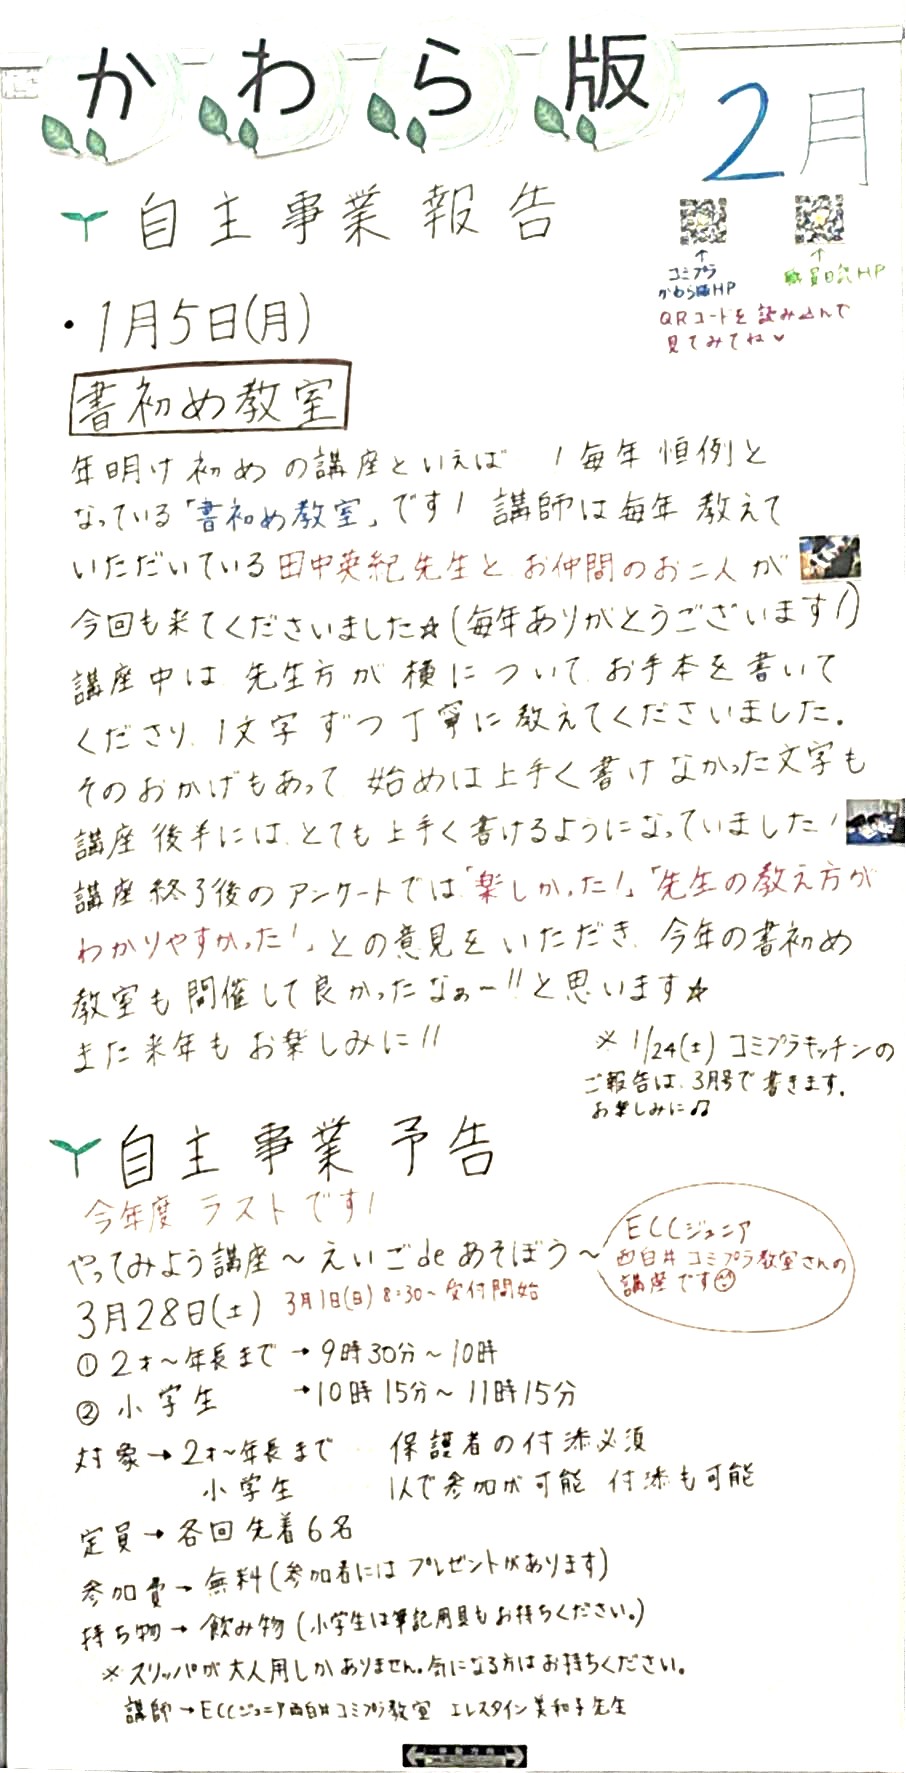 かわら版
2月
自主事業報告
↑
コミプラ
かわら版HP
↑
職員日記HP
QRコードを読み込んで
見てみてね♥
・1月5日(月)
書初め教室
年明け初めの講座といえば ! 毎年恒例と
なっている「書初め教室」です! 講師は毎年教えて
いただいている田中英紀先生とお仲間のお二人が
今回も来てくださいました☆(毎年ありがとうございます!)
講座中は、先生方が横について、お手本を書いて
くださり、1文字ずつ丁寧に教えてくださいました。
そのおかげもあって、始めは上手く書けなかった文字も
講座後半には、とても上手く書けるようになっていました!
講座終了後のアンケートでは「楽しかった!」「先生の教え方が
わかりやすかった!」との意見をいただき、今年の書初め
教室も開催して良かったなぁ~!!と思います☆
また来年もお楽しみに!!
※1/24(土)コミプラキッチンの
ご報告は、3月号で書きます。
お楽しみに♫
自主事業予告
今年度ラストです!
やってみよう講座~えいごdeあそぼう~
ECCジュニア
西白井コミプラ教室さんの
講座です
3月28日(土) 3月1日(日)8:30~受付開始
①2才~年長まで→9時30分~10時
②小学生 →10時15分~11時15分
対象→2才~年長まで 保護者の付添必須
小学生 1人で参加が可能 付添も可能
定員→各回先着6名
参加費→無料(参加者にはプレゼントがあります)
持ち物→飲み物(小学生は筆記用具もお持ちください。)
※スリッパが大人用しかありません。気になる方はお持ちください。
講師→ECCジュニア西白井コミプラ教室 エレスタイン美和子先生